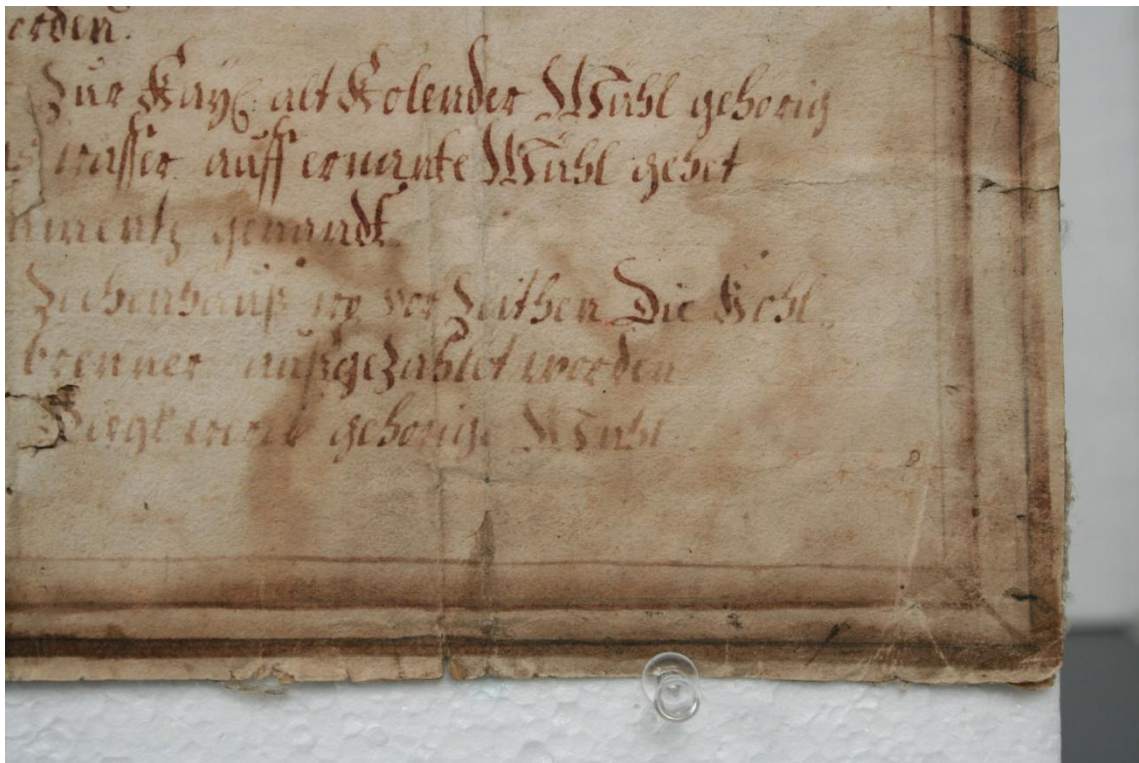 erden.
Zur Kayß: alt Kolender Mühl gehörig
wasser auff ernante Mühl gehet
genandt.
Zechenhauß wo vor Zeithen Die Kohl
brenner außgezahlet worden
gehörige Mühl